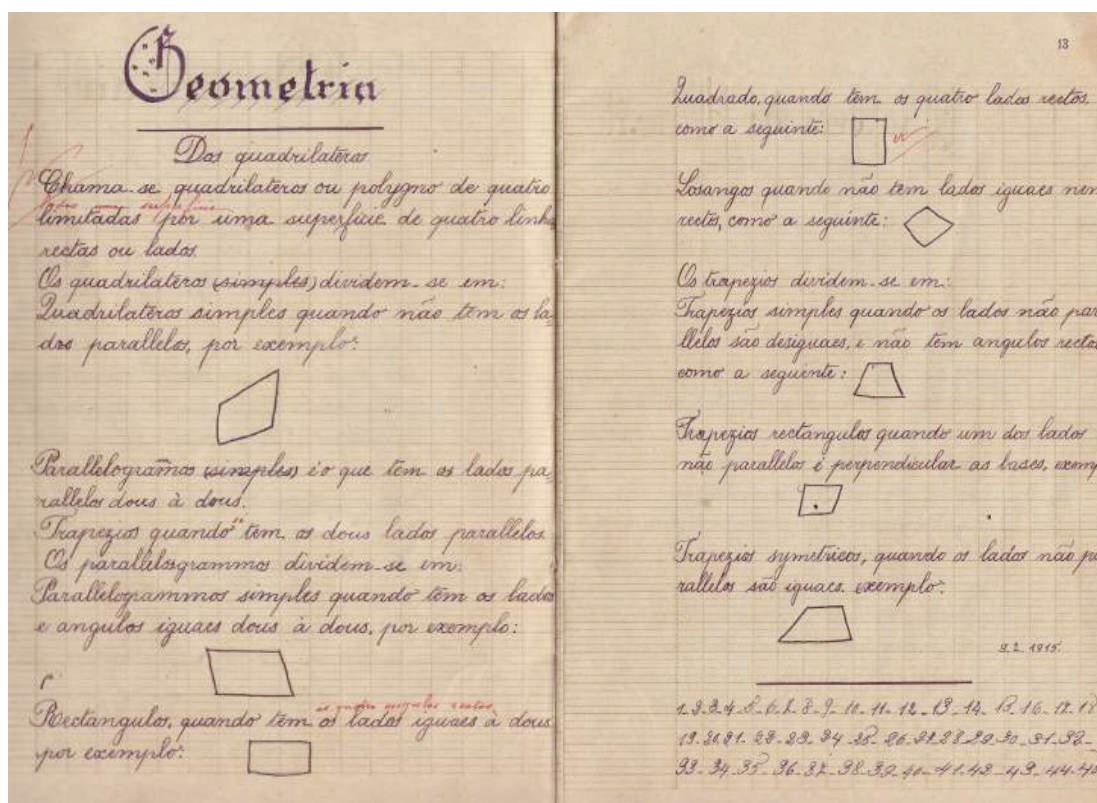 Geometria
Dos quadrilateros
Chama-se quadrilateros ou polygno de quatro
lados uma superficie
limitadas por uma superficie de quatro linha
rectas ou lados.
Os quadrilateros (simples) dividem-se em:
Quadrilateros simples quando não têm os la-
dos parallelos, por exemplo:
Parallelogrammos (simples) é o que tem os lados pa-
rallelos dous à dous.
Trapezios quando têm os dous lados parallelos.
Os parallelosgrammos dividem-se em:
Parallelogrammos simples quando têm os lados
e angulos iguaes dous à dous, por exemplo:
os quatro angulos rectos
Rectangulos, quando têm os lados iguaes à dous
por exemplo:
13
Quadrado, quando têm os quatro lados rectos,
como a seguinte:
Losangos quando não tem lados iguaes nem
rectos, como a seguinte:
Os trapezios dividem-se em:
Trapezios simples quando os lados não par
llelos são desiguaes, e não têm angulos rectos
como a seguinte:
Trapezios rectangulos quando um dos lados
não parallelos é perpendicular as bases, exemp
Trapezios symetricos, quando os lados não pa
rallelos são iguaes. exemplo:
9.2.1915.
1-2-3-4-5-6-7-8-9-10-11-12-13-14-15-16-17-18
19-20-21-22-23-24-25-26-27-28-29-30-31-32-
33-34-35-36-37-38-39-40-41-42-43-44-45